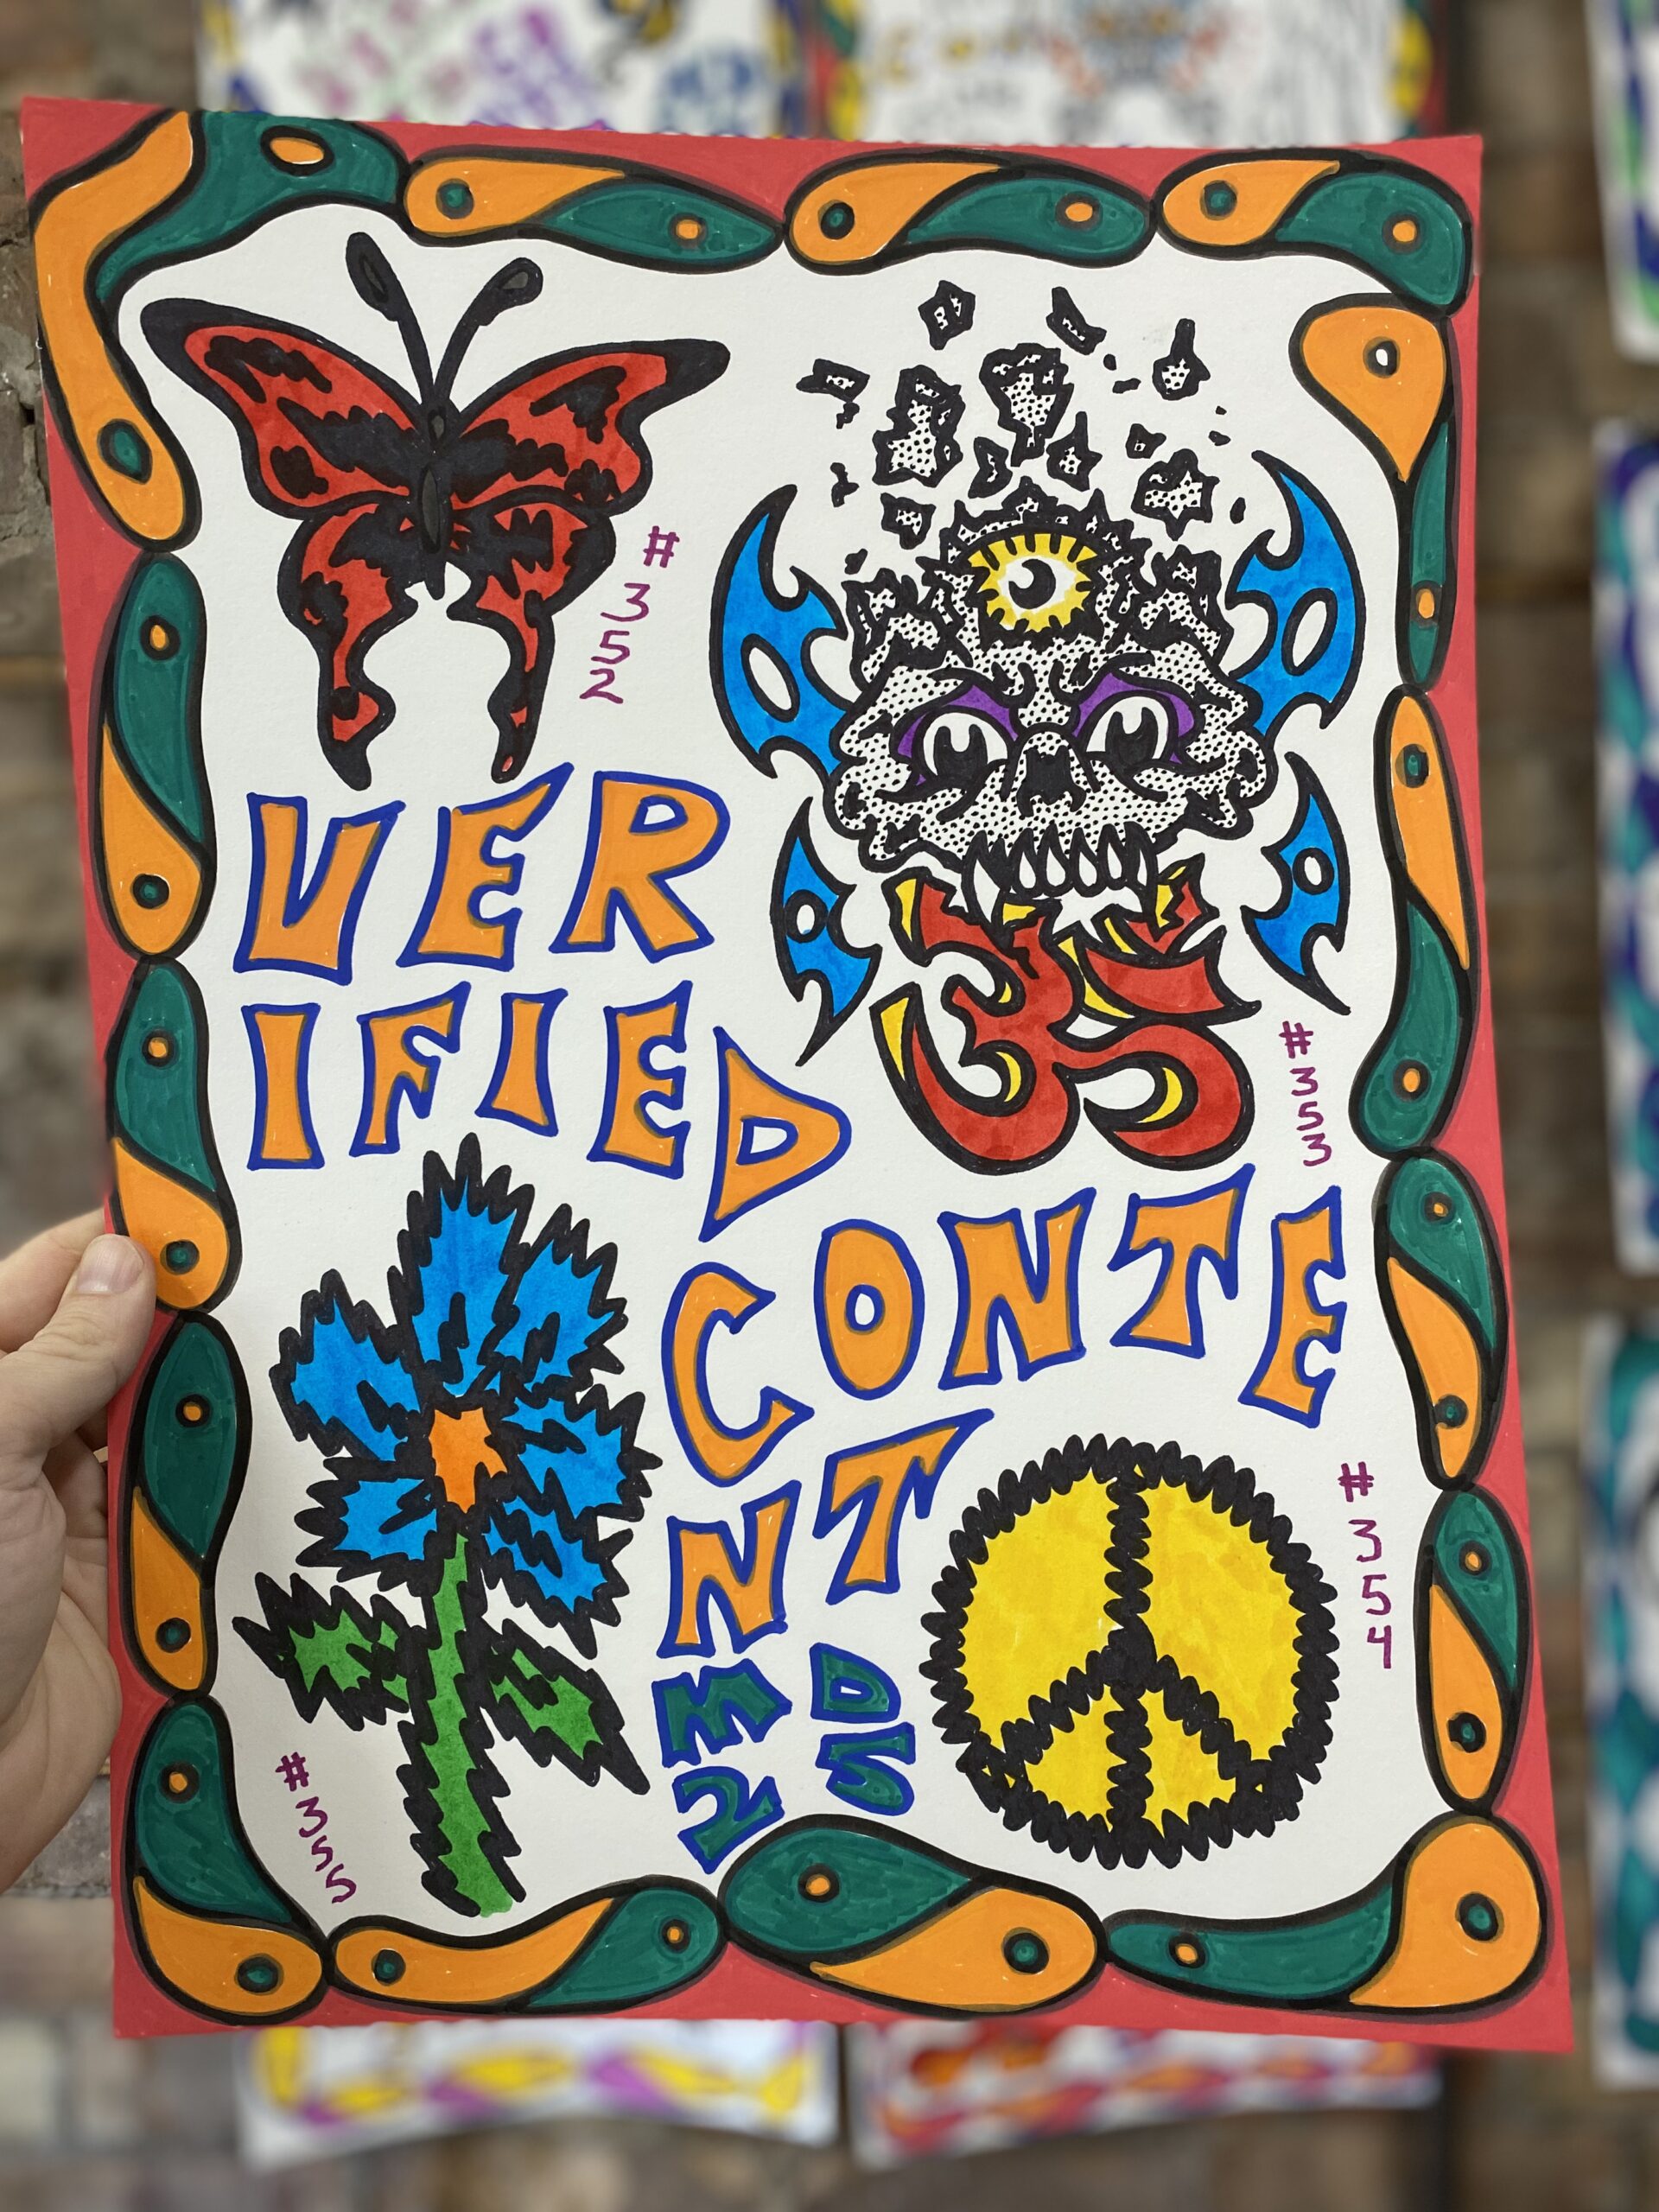 #352
VER
IFIED
#353
CONTE
NT
#354
MD
2S
#355